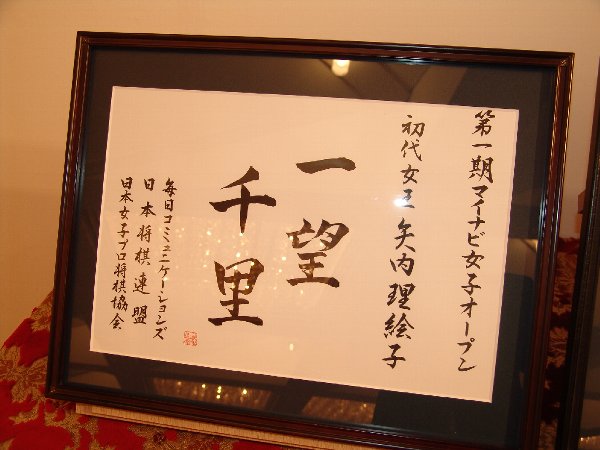 第一期マイナビ女子オープン
初代女王 矢内理絵子
一望
千里
毎日コミュニケーションズ
日本将棋連盟
日本女子プロ将棋協会